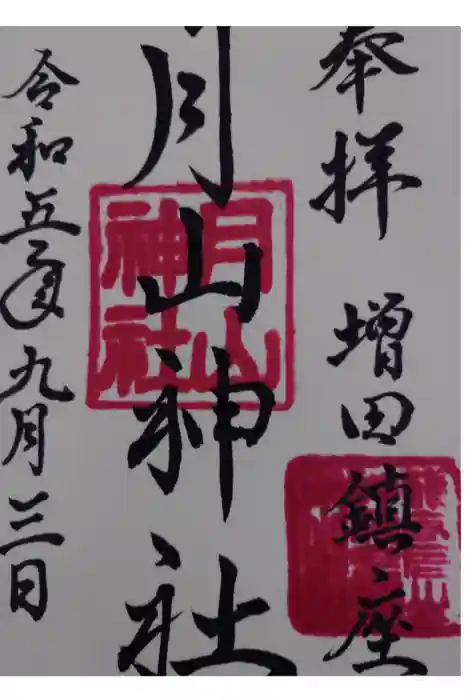 奉拝 増田鎮座
月山神社
月山神社
令和五年九月三日